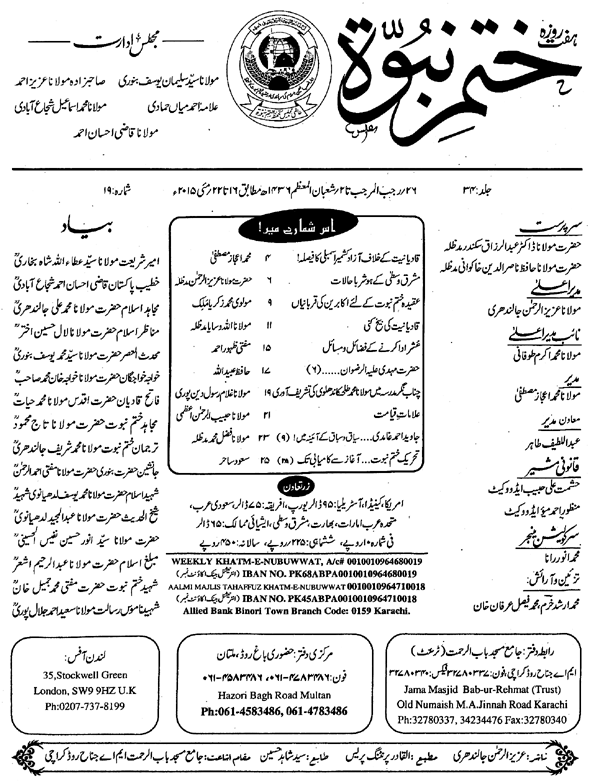 ہفت روزہ
ختم نبوّة
مجلس ادارت
مولانا سیّد سلیمان یوسف بنوری صاحبزادہ مولانا عزیز احمد
علامہ احمد میاں حمادی مولانا محمد اسماعیل شجاع آبادی
مولانا قاضی احسان احمد
جلد: ۳۴ ۲۶؍رجب المرجب تا ۲؍شعبان المعظم ۱۴۳۶ھ مطابق ۱۶ تا ۲۲؍مئی ۲۰۱۵ء شمارہ: ۱۹
سرپرست
حضرت مولانا ڈاکٹر عبدالرزاق سکندر مدظلہ
حضرت مولانا حافظ ناصر الدین خاکوانی مدظلہ
مدیر اعلیٰ
مولانا عزیز الرحمٰن جالندھری
نائب مدیر اعلیٰ
مولانا محمد اکرم طوفانی
مدیر
مولانا محمد اعجاز مصطفیٰ
معاون مدیر
عبداللطیف طاہر
قانونی مشیر
حشمت علی حبیب ایڈووکیٹ
منظور احمد میؤ ایڈووکیٹ
سرکولیشن منیجر
محمد انور رانا
تزئین و آرائش:
محمد ارشد خرم، محمد فیصل عرفان خان
اس شمارے میں!
قادیانیت کے خلاف آزاد کشمیر اسمبلی کا فیصلہ! ۴ محمد اعجاز مصطفیٰ
مشرق وسطیٰ کے ہوشربا حالات ۶ حضرت عزیز الرحمٰن مدظلہ
عقیدہ ختم نبوت کے لئے اکابرین کی قربانیاں ۹ مولوی محمد زکریا
قادیانیت کی بیخ کنی ۱۱ مولانا اللہ وسایا مدظلہ
عشر ادا کرنے کے فضائل و مسائل ۱۵ مفتی ظہور احمد
حضرت مہدی علیہ الرضوان...... (۶) ۱۷ حافظ عبیداللہ
چناب نگر مدرسہ میں مولانا محمد طلحہ کاندھلوی کی تشریف آوری ۱۹ مولانا غلام رسول دین پوری
علامات قیامت ۲۱ مولانا حبیب الرحمٰن اعظمی
جاوید احمد غامدی... سیاق و سباق کے آئینہ میں! (۹) ۲۳ مولانا فضل محمد مدظلہ
تحریک ختم نبوت... آغاز سے کامیابی تک (۲۸) ۲۵ سعود ساحر
زرِتعاون
امریکا، کینیڈا، آسٹریلیا: ۹۵ ڈالر یورپ، افریقہ: ۷۵ ڈالر، سعودی عرب،
متحدہ عرب امارات، بھارت، مشرق وسطیٰ، ایشیائی ممالک: ۶۵ ڈالر
فی شمارہ ۱۰ روپے، ششماہی: ۲۲۵ روپے، سالانہ: ۴۵۰ روپے
WEEKLY KHATM-E-NUBUWWAT, A/c# 0010010964680019
IBAN NO. PK68ABPA0010010964680019 (انٹرنیشنل بینک اکاؤنٹ نمبر)
AALMI MAJLIS TAHAFFUZ KHATM-E-NUBUWWAT 0010010964710018
IBAN NO. PK45ABPA0010010964710018 (انٹرنیشنل بینک اکاؤنٹ نمبر)
Allied Bank Binori Town Branch Code: 0159 Karachi.
بیاد
امیر شریعت مولانا سیّد عطاء اللہ شاہ بخاریؒ
خطیب پاکستان قاضی احسان احمد شجاع آبادیؒ
مجاہد اسلام حضرت مولانا محمد علی جالندھریؒ
مناظر اسلام حضرت مولانا لال حسین اخترؒ
محدث العصر حضرت مولانا سیّد محمد یوسف بنوریؒ
خواجہ خواجگان حضرت مولانا خواجہ خان محمد صاحبؒ
فاتح قادیان حضرت اقدس مولانا محمد حیاتؒ
مجاہد ختم نبوت حضرت مولانا تاج محمودؒ
ترجمان ختم نبوت حضرت مولانا محمد شریف جالندھریؒ
جانشین حضرت بنوری حضرت مولانا مفتی احمد الرحمٰنؒ
شہید اسلام حضرت مولانا محمد یوسف لدھیانوی شہیدؒ
شیخ الحدیث حضرت مولانا عبدالمجید لدھیانویؒ
حضرت مولانا سیّد انور حسین نفیس الحسینیؒ
مبلغ اسلام حضرت مولانا عبدالرحیم اشعرؒ
شہید ختم نبوت حضرت مفتی محمد جمیل خانؒ
شہید ناموس رسالت مولانا سعید احمد جلال پوریؒ
رابطہ دفتر: جامع مسجد باب الرحمت (ٹرسٹ)
ایم اے جناح روڈ کراچی، فون: ۳۲۷۸۰۳۳۷ فیکس: ۳۲۷۸۰۳۴۰
Jama Masjid Bab-ur-Rehmat (Trust)
Old Numaish M.A.Jinnah Road Karachi
Ph:32780337, 34234476 Fax:32780340
مرکزی دفتر: حضوری باغ روڈ، ملتان
فون: ۰۶۱-۴۷۸۳۴۸۶، ۰۶۱-۴۵۸۳۴۸۶
Hazori Bagh Road Multan
Ph:061-4583486, 061-4783486
لندن آفس:
35,Stockwell Green
London, SW9 9HZ U.K
Ph:0207-737-8199
ناشر: عزیز الرحمٰن جالندھری مطبع: القادر پرنٹنگ پریس طابع: سیّد شاہد حسین مقام اشاعت: جامع مسجد باب الرحمت ایم اے جناح روڈ کراچی